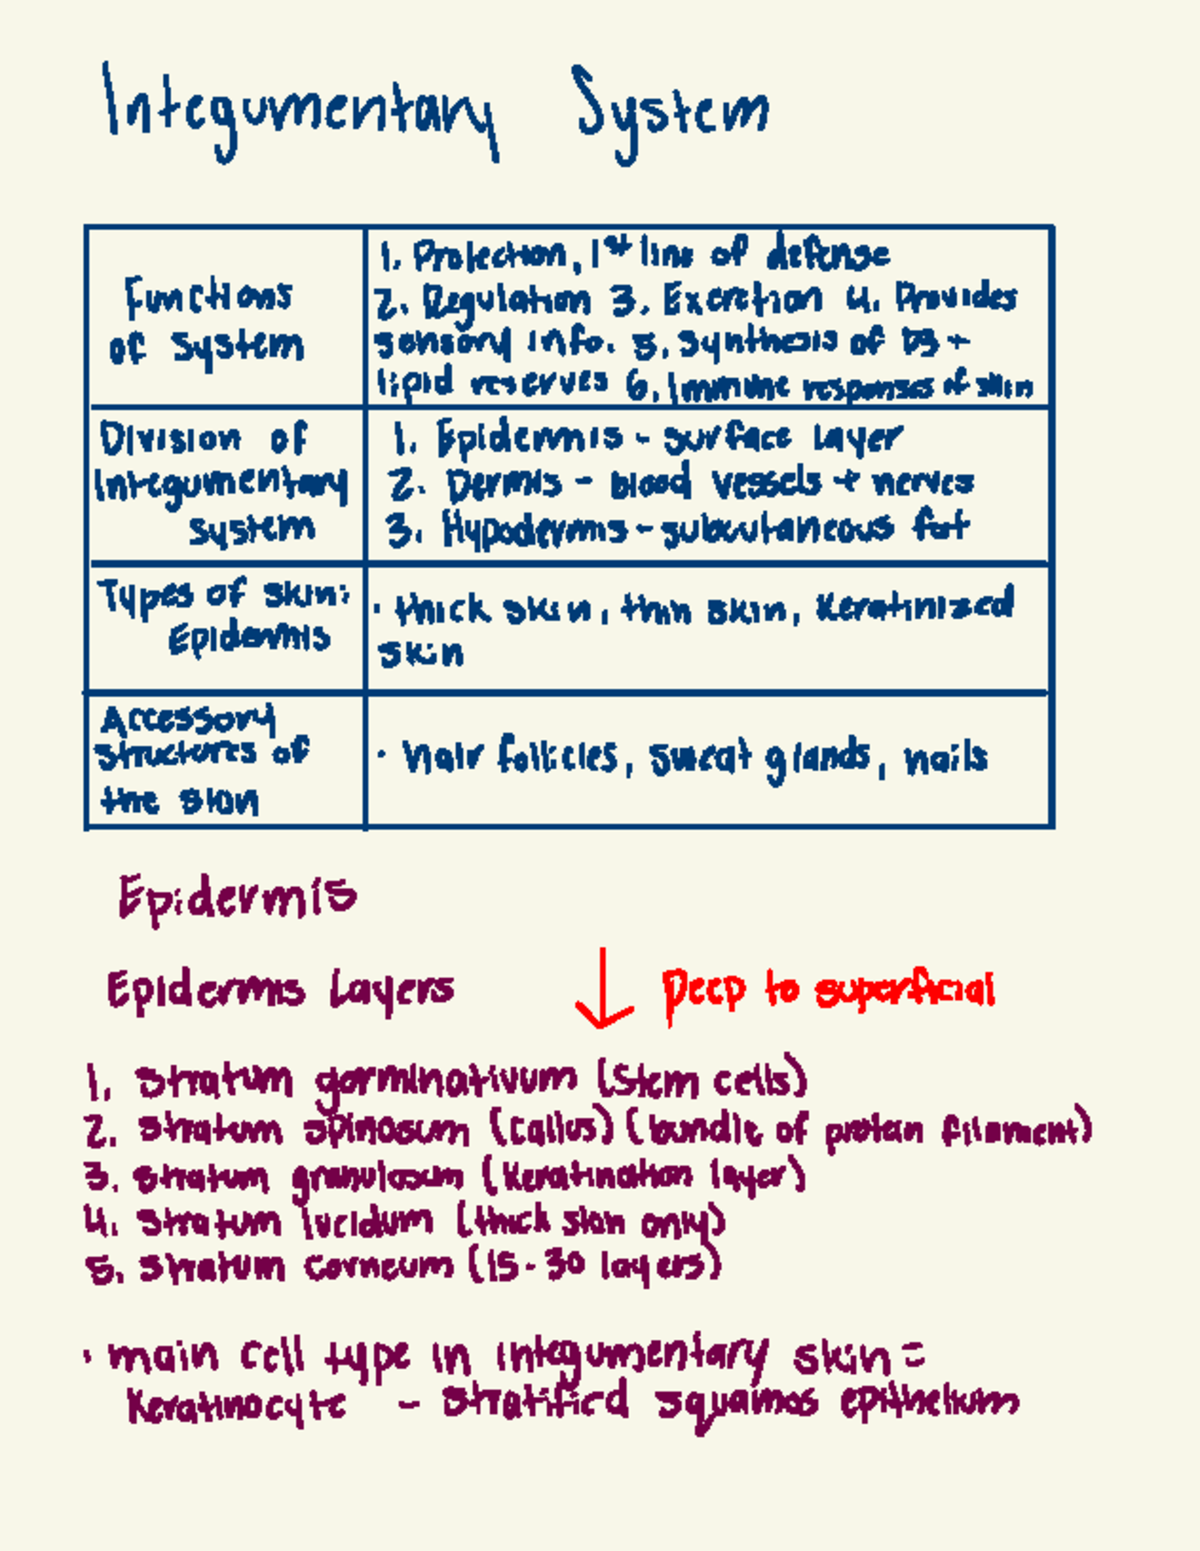 Integumentary System
Functions of System
1. Protection, 1st line of defense
2. Regulation 3. Excretion 4. Provides
sensory info. 5. Synthesis of D3 +
lipid reserves 6. Immune responses of skin
Division of Integumentary System
1. Epidermis - surface layer
2. Dermis - blood vessels + nerves
3. Hypodermis - subcutaneous fat
Types of skin: Epidermis
• thick skin, thin skin, keratinized
skin
Accessory structures of the skin
• hair follicles, sweat glands, nails
Epidermis
Epidermis Layers ↓ Deep to superficial
1. Stratum germinativum (stem cells)
2. Stratum spinosum (callus) (bundle of protein filament)
3. Stratum granulosum (keratination layer)
4. Stratum lucidum (thick skin only)
5. Stratum corneum (15-30 layers)
• main cell type in integumentary skin =
Keratinocyte - stratified squamos epithelium